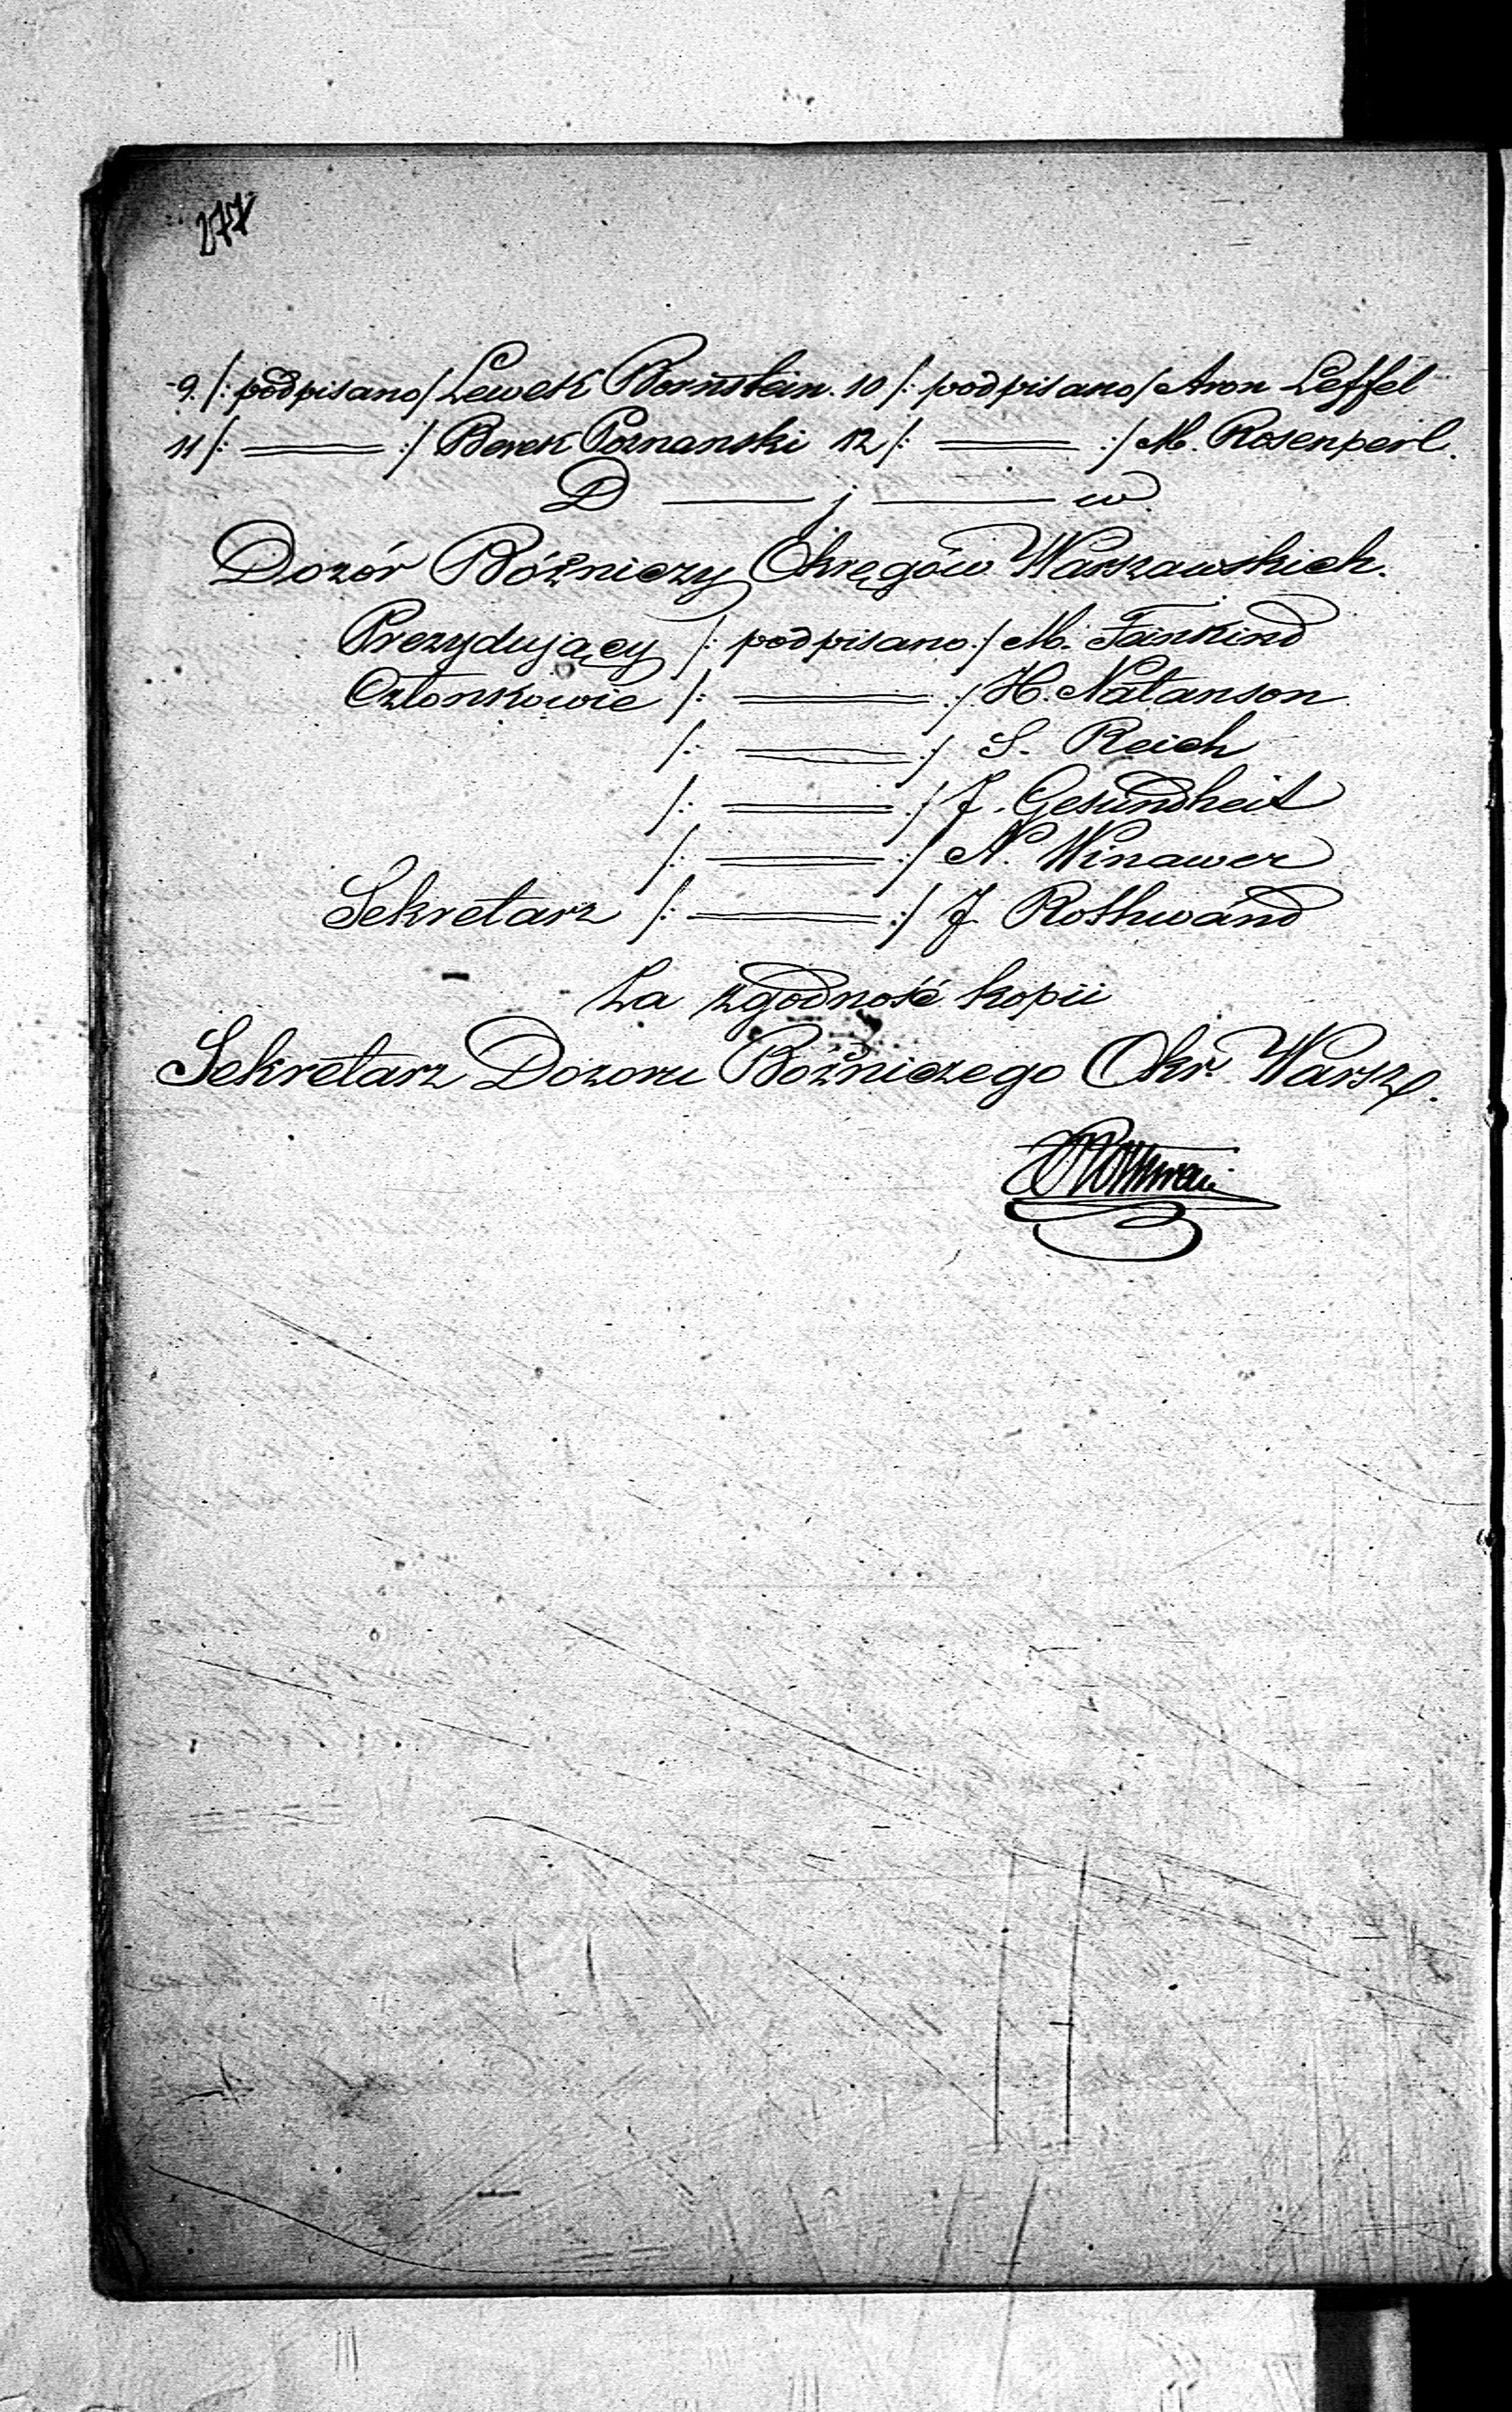 277
9. /: podpisano / Lewek Bornstein. 10 /: podpisano / Aron Leffel
11 /: ═══ :/ Berek Poznanski 12 /: ═══ :/ M. Rosenperl.
D ——— j ——— w
Dozór Bóżniczy Okręgów Warszawskich.
Prezydujący /: podpisano :/ M. Fainkind
Członkowie /: ═══ :/ H. Natanson
/: ═══ :/ S. Reich
/: ═══ :/ J. Gesundheit
/: ═══ :/ N. Winawer
Sekretarz /: ═══ :/ J Rothwand
Za zgodność kopii
Sekretarz Dozoru Bóżniczego Okr. Warsz.